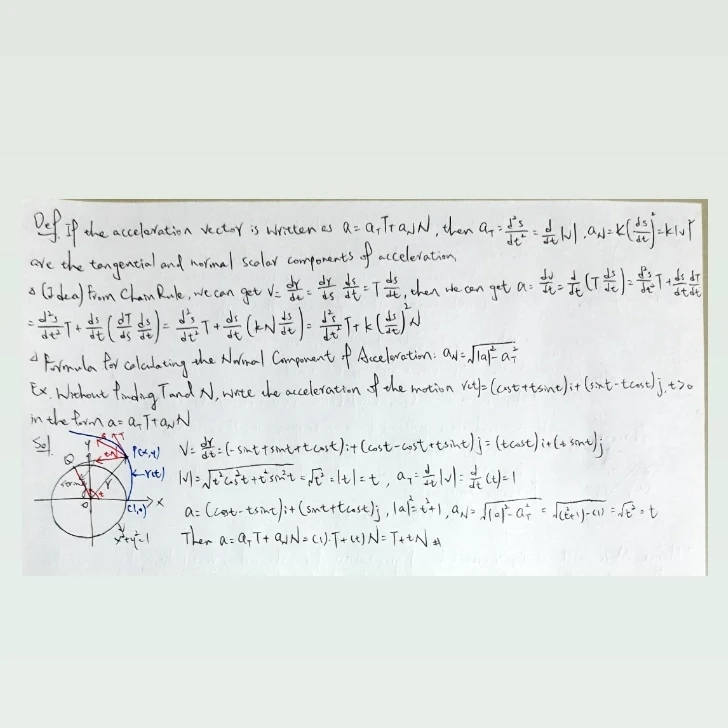 Def. If the acceleration vector is written as a = a_T T + a_N N, then a_T = d²s/dt² = d/dt |v|, a_N = κ(ds/dt)² = κ|v|²
are the tangential and normal scalar components of acceleration
(Idea) From Chain Rule, we can get v = dr/dt = dr/ds ds/dt = T ds/dt, then we can get a = dv/dt = d/dt (T ds/dt) = d²s/dt² T + ds/dt dT/dt
= d²s/dt² T + ds/dt (dT/ds ds/dt) = d²s/dt² T + ds/dt (κN ds/dt) = d²s/dt² T + κ(ds/dt)² N
Formula for calculating the Normal Component of Acceleration: a_N = √(|a|² - a_T²)
Ex. Without finding T and N, write the acceleration of the motion r(t) = (cost + tsint)i + (sint - tcost)j, t>0
in the form a = a_T T + a_N N
Sol
v = dr/dt = (-sint + sint + tcost)i + (cost - cost + tsint)j = (tcost)i + (t sint)j
|v| = √(t²cos²t + t²sin²t) = √t² = |t| = t, a_T = d/dt |v| = d/dt (t) = 1
a = (cost - tsint)i + (sint + tcost)j, |a|² = t² + 1, a_N = √(|a|² - a_T²) = √((t²+1) - (1)) = √t² = t
Then a = a_T T + a_N N = (1)·T + (t)N = T + tN #
y
T
Q
P(x,y)
r
r(t)
t
O
(1,0)
x
x²+y²=1